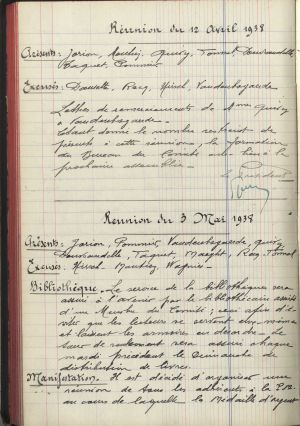 Réunion du 12 Avril 1938
Présents: Jorion, Mauchy, Quivy, Tonnel, Deursaudelle,
Taquet, Pommier
Excusés: Doucette, Roey, Hissel, Vaudenbogaerde
Lettres de remerciements de Mme Quivy
& Vaudenbogaerde.
Etant donné le nombre restreint de
présents à cette réunion, la formation
du Bureau du Comité aura lieu à la
prochaine assemblée.
Le Président
Réunion du 3 Mai 1938
Présents: Jorion, Pommier, Vaudenbogaerde, Quivy,
Taquet, Roey, Tonnel
Excusés: Hissel, Wagnies.
Bibliothèque. Le service de la bibliothèque sera
assuré à l'avenir par le bibliothécaire assisté
d'un Membre du Comité; ceci afin d'é-
viter que les lecteurs se servent eux-mêmes
et laissent les armoires en désordre. Le
tour de roulement sera assuré chaque
mardi précédent le dimanche de
distribution de livres.
Manifestation. Il est décidé d'organiser une
réunion de tous les adhérents à la
au cours de laquelle la Médaille d'argent